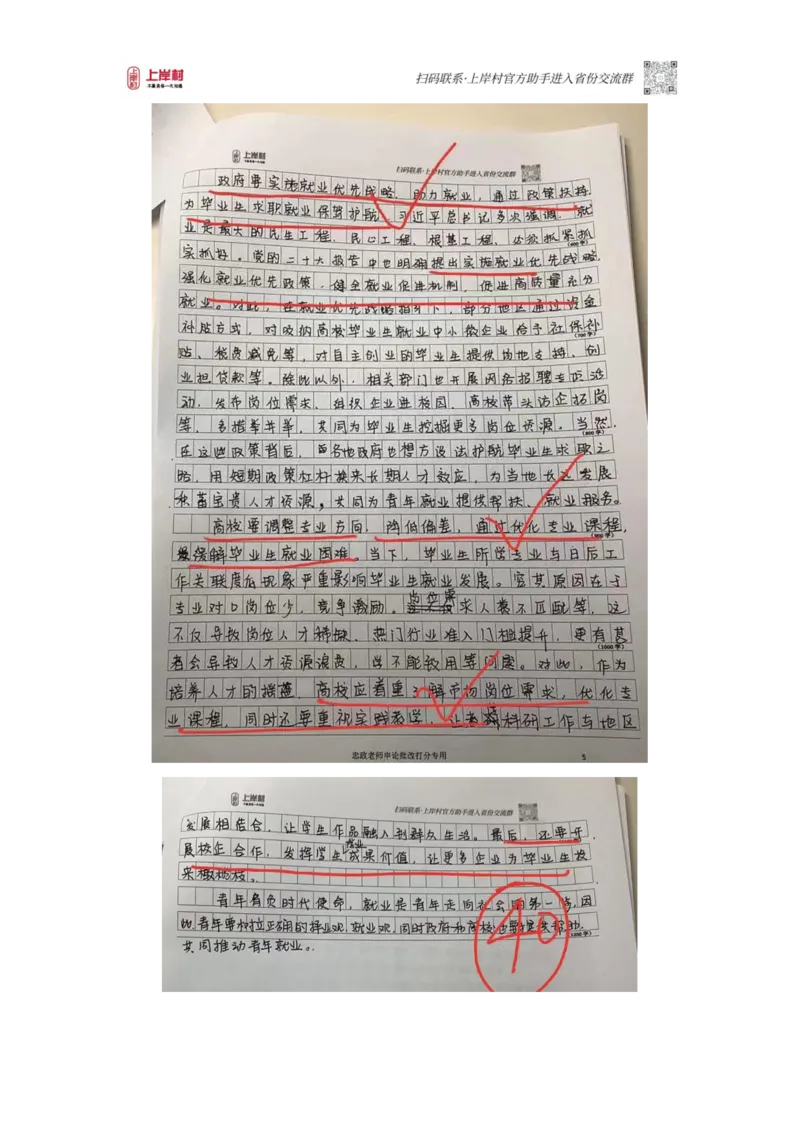 上岸村
不辜负每一代沟通
扫码联系·上岸村官方助手进入省份交流群
上岸村
扫码联系·上岸村官方助手进入省份交流群
政府要实施就业优先战略,助力就业,通过政策扶持,
为毕业生求职就业保驾护航。习近平总书记多次强调,就
业是最大的民生工程、民心工程、根基工程,必须抓紧抓
(600字)
实抓好。党的二十大报告中也明确提出实施就业优先战略,
强化就业优先政策,健全就业促进机制,促进高质量充分
就业。对此,在就业优先战略指引下,部分地区通过资金
补贴方式,对吸纳高校毕业生就业中小微企业给予社保补
(700字)
贴、税费减免等,对自主创业的毕业生提供场地支持、创
业担贷款等。除此以外,相关部门也开展网络招聘专项活
动,发布岗位需求、组织企业进校园、高校带头访企拓岗
等,多措并举,共同为毕业生挖掘更多岗位资源。当然,
(800字)
在这些政策背后,各地政府也想方设法护航毕业生求职之
路,用短期政策杠杆换来长期人才效应,为当地长远发展
积蓄宝贵人才资源。共同为青年就业提供帮扶、就业服务。
高校要调整专业方向,降低偏差,通过优化专业课程,
(900字)
缓解毕业生就业困难。当下,毕业生所学专业与日后工
作关联度低现象严重影响毕业生就业发展。究其原因在于
专业对口岗位少,竞争激励。岗位需求人表不匹配等,这
不仅导致岗位人才稀缺、热门行业准入门槛提升,更有甚
(1000字)
者会导致人才资源浪费,学不能致用等问题。对此,作为
培养人才的摇篮,高校应着重了解市场岗位需求,优化专
业课程,同时不要重视实践教学,让老师科研工作与地区
忠政老师申论批改打分专用
5
上岸村
扫码联系·上岸村官方助手进入省份交流群
发展相结合,让学生作品融入到群众生活。最后,还要开
展校企合作,发挥学生成果价值,让更多企业为毕业生投
来橄榄枝。
青年肩负时代使命,就业是青年走向社会的第一步,因
此青年要树立正确的择业观、就业观,同时政府和高校也要提供帮助,
(1200字)
共同推动青年就业。
40